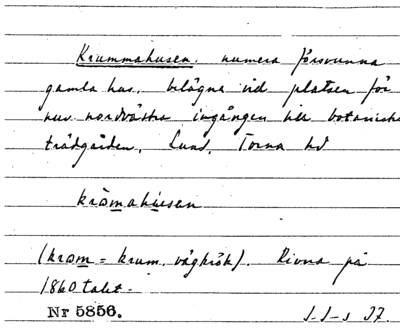 Krummahusen. numera försvunna
gamla hus, belägna vid platsen för
nuv. nordvästra ingången till botaniska
trädgården, Lund, Torna hd
kròmahùsen
(krom = krum, vägkrök). Rivna på
1860 talet.
Nr 5856.